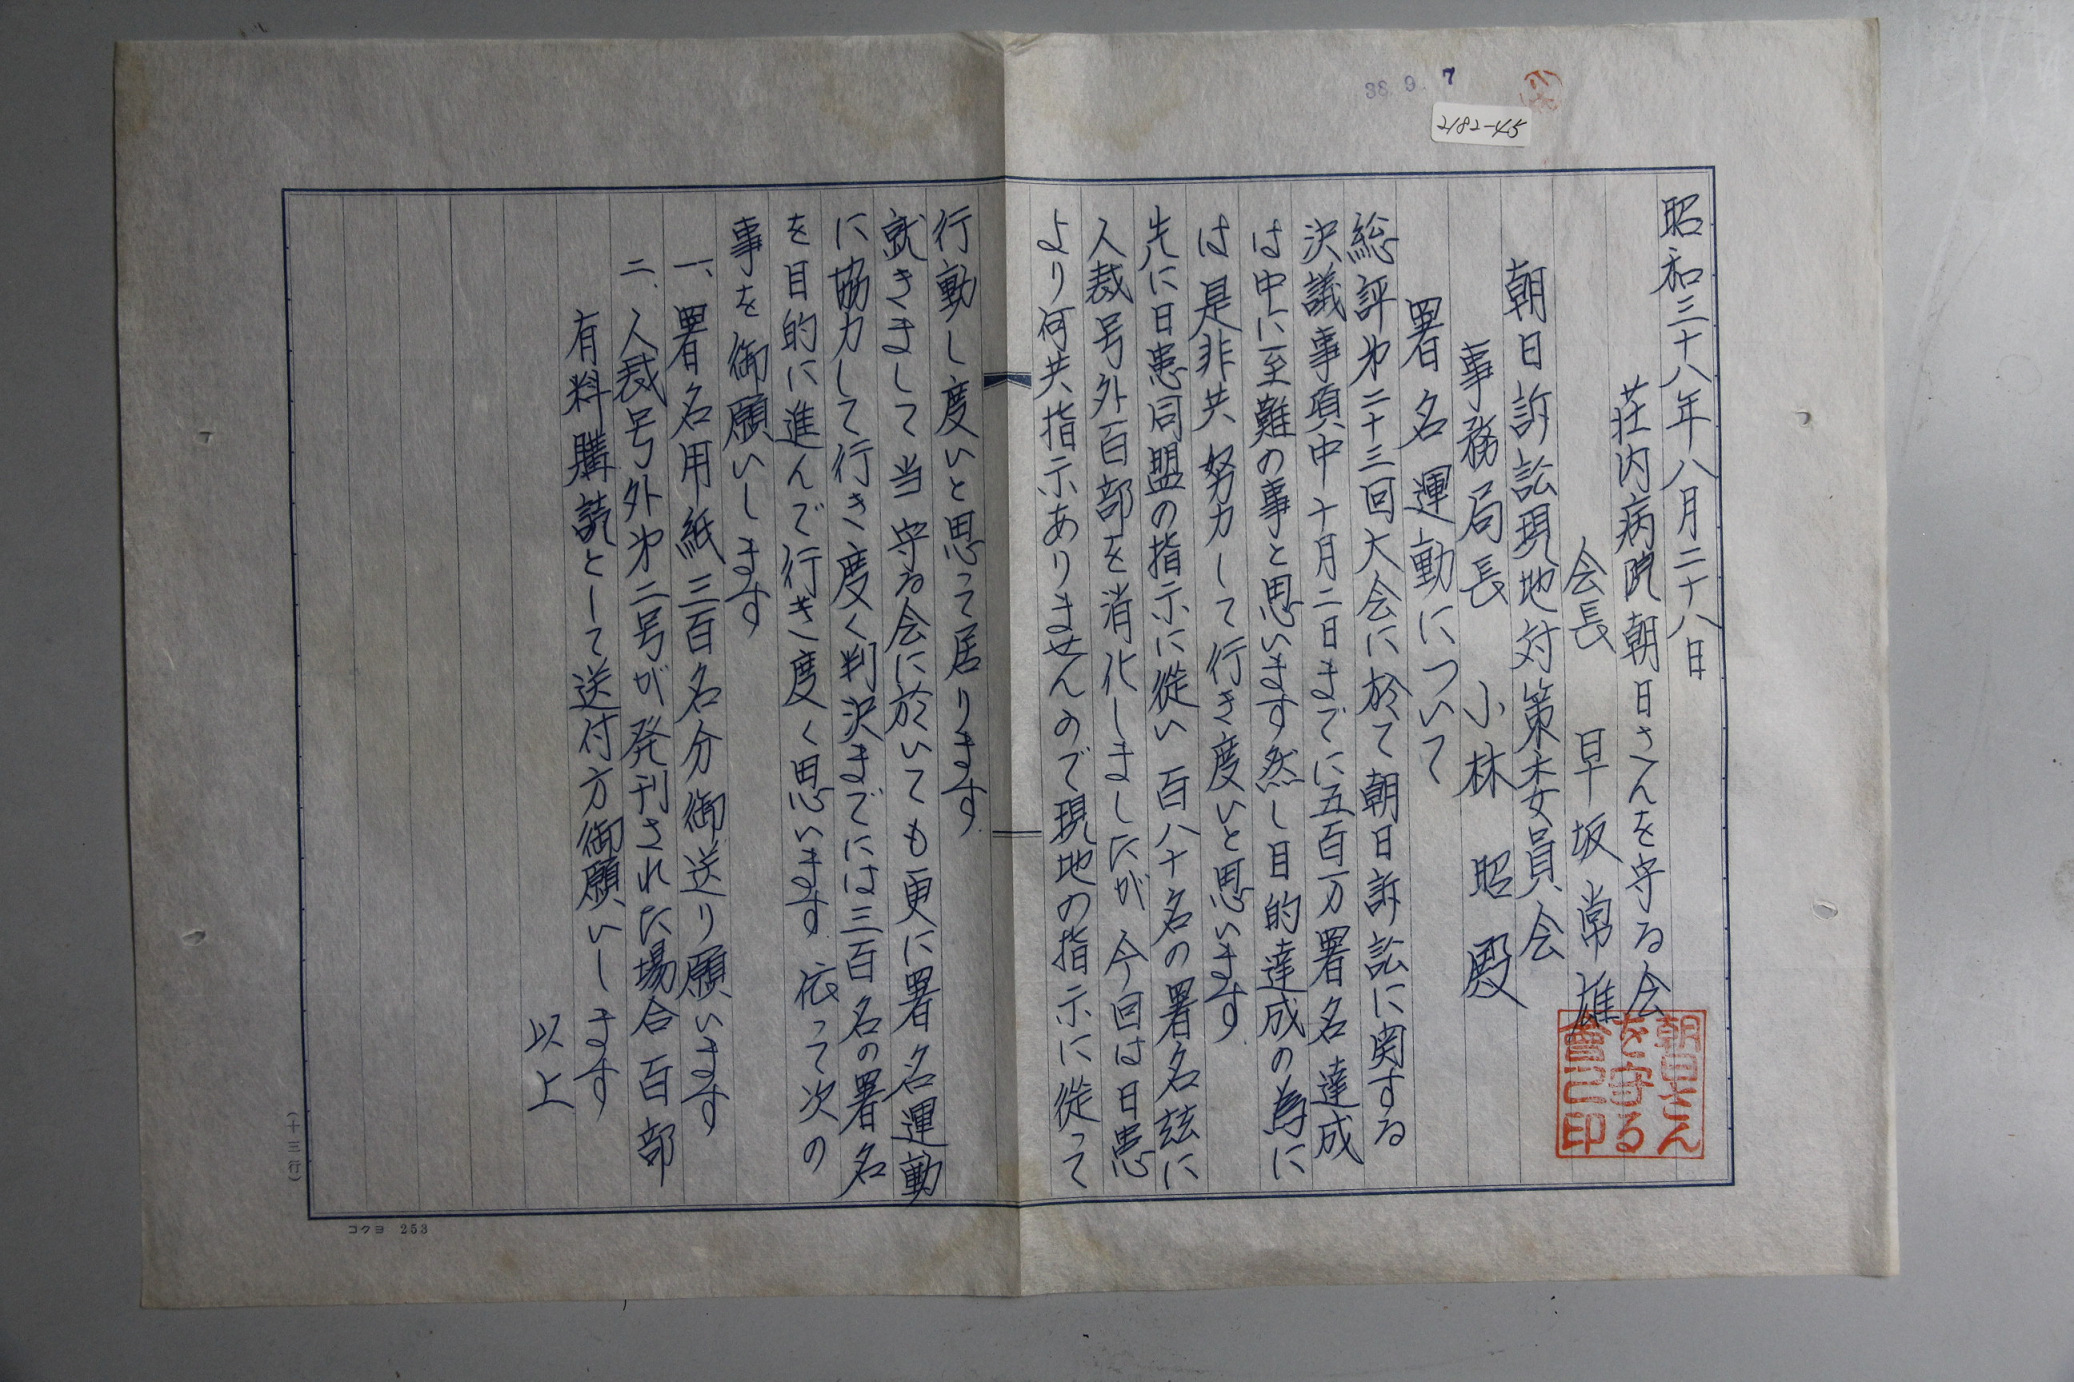 38.9.7
2182-45
昭和三十八年八月二十八日
荘内病院朝日さんを守る会
会長 早坂常雄
朝日さん
を守る
會之印
朝日訴訟現地対策委員会
事務局長 小林昭殿
署名運動について
総評才二十三回大会に於て朝日訴訟に関する
決議事項中十月二日までに五百万署名達成
は中に至難の事と思います然し目的達成の為に
は是非共努力して行き度いと思います
先に日患同盟の指示に従い百八十名の署名玆に
人裁号外百部を消化しましたが今回は日患
より何共指示ありませんので現地の指示に従って
行動し度いと思って居ります
就きまして当守る会に於いても更に署名運動
に協力して行き度く判決までには三百名の署名
を目的に進んで行き度く思います.依って次の
事を御願いします
一、署名用紙三百名分御送り願います
二、人裁号外才二号が発刊された場合百部
有料購読として送付方御願いします
以上
(十三行)
コクヨ 253